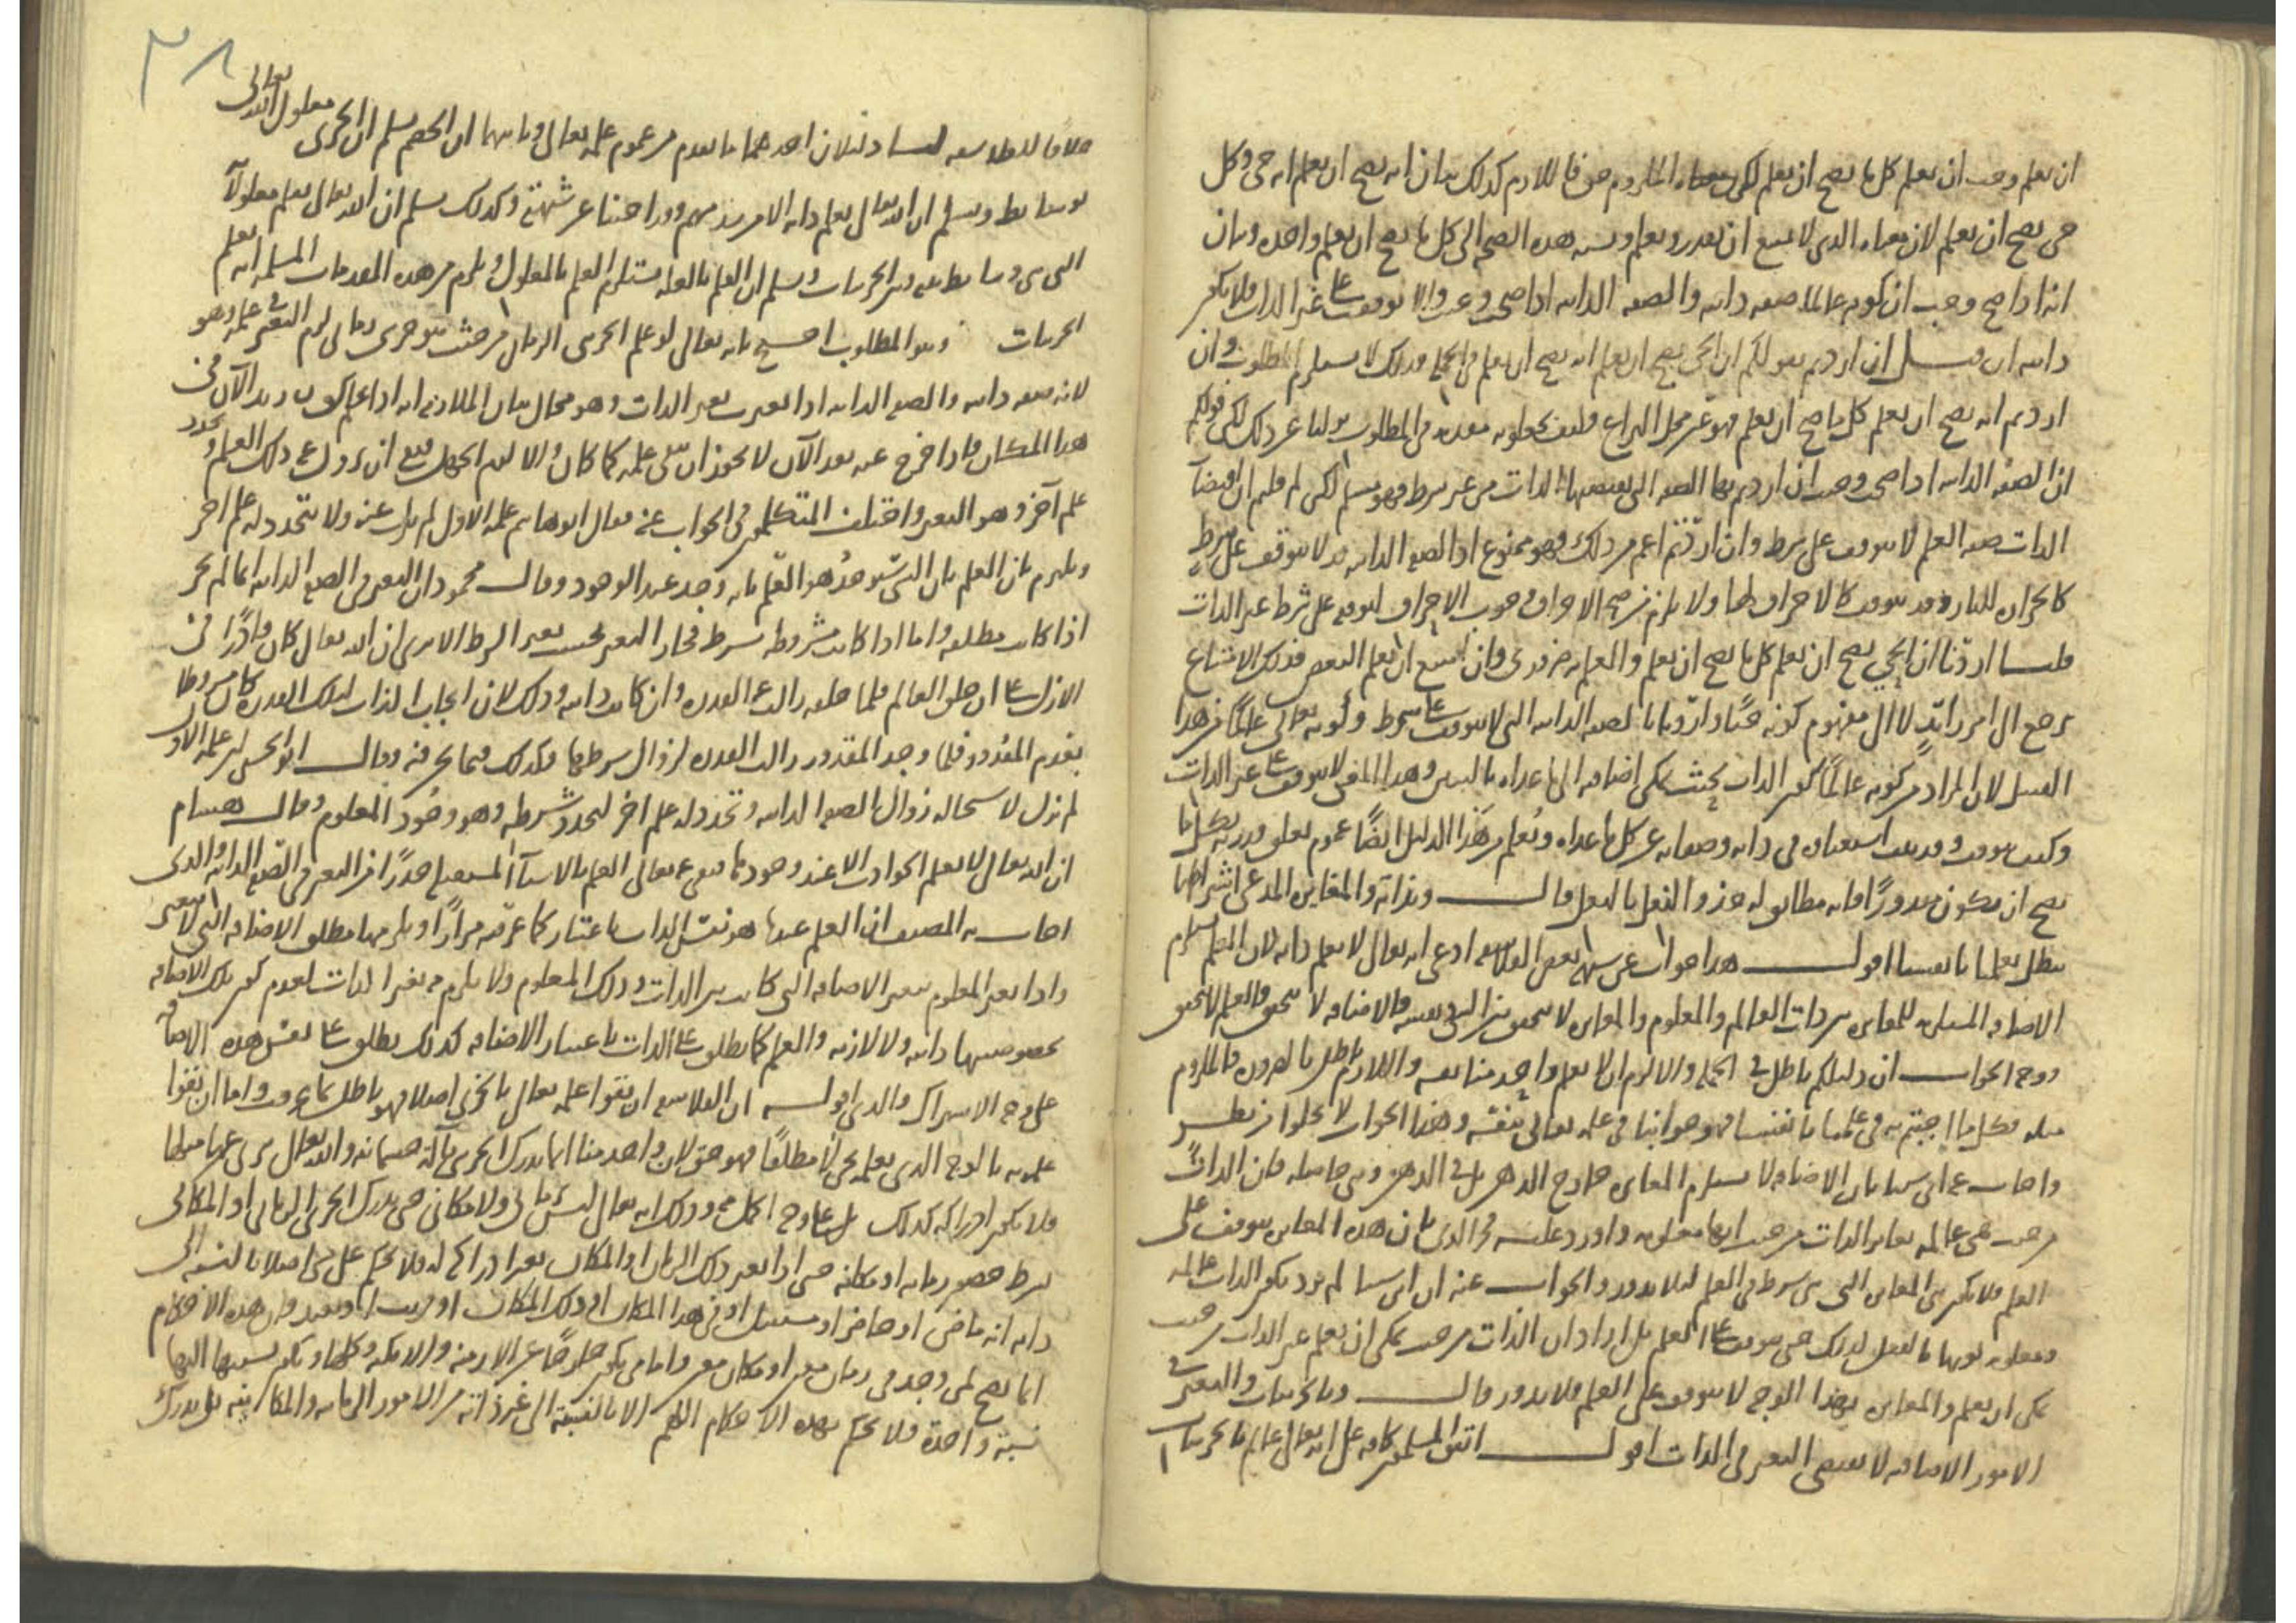 ان يعلم وجب ان يعلم كل ما يصح ان يعلم لكن الملزوم حق فاللازم كذلك بيان انه يصح ان يعلم انه حي وكل
حي يصح ان يعلم لان معناه الذي لا يمتنع ان يقدر ويعلم ونسبة هذه الصحة الى كل ما يصح ان يعلم واحدة وبيان
انه اذا صح وجب ان كونه عالما صفة ذاتية والصفة الذاتية اذا صحت وجبت والا توقفت على غير الذات فلا يكون
ذاتية ان قيل ان اردتم بقولكم ان الحي يصح ان يعلم انه يصح ان يعلم في الجملة فذلك لا يستلزم المطلوب وان
اردتم انه يصح ان يعلم كل ما صح ان يعلم فهو عين محل النزاع فكيف تجعلونه مقدمة في المطلوب نزلنا عن ذلك لكن قولكم
ان الصفة الذاتية اذا صحت وجبت ان اردتم بها الصفة التي يقتضيها الذات من غير شرط فهو مسلم لكن لم قلتم ان اقتضاء
الذات صفة العلم لا يتوقف على شرط وان اردتم اعم من ذلك فهو ممنوع اذ الصفة الذاتية قد لا يتوقف على شرط
كالحرارة للنار وقد يتوقف كالاحراق لها ولا يلزم من صحة الاحراق وجوب الاحراق لتوقفه على شرط غير الذات
قلنا اردنا ان الحي يصح ان يعلم كل ما يصح ان يعلم والعلم به ضروري وان امتنع ان يعلم البعض فذلك الامتناع
يرجع الى امر زائد لا الى مفهوم كونه حيا واردنا بالصفة الذاتية التي لا يتوقف على شرط وكونه تعالى عالما من هذا
القبيل لان المراد من كونه عالما كون الذات بحيث يمكن اضافته الى ما عداه بالتبين وهذا المعنى لا يتوقف على غير الذات
وكيف يتوقف وقد ثبت استغناؤه في ذاته وصفاته عن كل ما عداه ويعلم من هذا الدليل ايضا عموم تعلق قدرته بكل ما
يصح ان يكون مقدورا فانه مطابق له حذو النعل بالنعل قال وبذاته والتغاير المدعى اشتراطها
يبطل بعلمنا بانفسنا اقول هذا جواب عن شبهة بعض الفلاسفة ادعى انه تعالى لا يعلم ذاته لان العلم يستلزم
الاضافة المستلزمة للتغاير بين ذات العالم والمعلوم والتغاير لا يتحقق بين الشيء ونفسه فالاضافة لا تتحقق فالعلم لا يتحقق
ووجه الجواب ان دليلكم باطل في الجملة والا لزم ان لا يعلم واحد منا نفسه واللازم باطل بالضرورة فالملزوم
مثله وكل ما اجبتم به في علمنا بانفسنا فهو جوابنا في علمه تعالى بنفسه وهذا الجواب لا يخلو من نظر
واجاب عنه ابن سينا بان الاضافة لا تستلزم التغاير خارج الذهن بل في الذهن وهي حاصلة فان الذات
من حيث هي عالمة تغاير الذات من حيث انها معلومة واورد عليه فخر الدين بان هذه التغاير يتوقف على
العلم فلا يكون هي التغاير التي هي شرط في العلم لئلا يدور والجواب عنه ان ابن سينا لم يرد بكون الذات عالمة
ومعلومة كونها بالفعل كذلك حتى يتوقف على العلم بل اراد ان الذات من حيث يمكن ان يعلم غير الذات من حيث
يمكن ان يعلم والتغاير بهذا الوجه لا يتوقف على العلم فلا يدور قال وبالجزئيات والتغير في
الامور الاضافية لا يقتضي التغير في الذات اقول اتفق المسلمون كافة على انه تعالى عالم بالجزئيات
٣٨
خلافا للفلاسفة لنا دليلان احدهما ما تقدم من عموم علمه تعالى وثانيهما ان الخصم يسلم ان الجزئي معلول لله تعالى
بوسائط ويسلم ان الله تعالى يعلم ذاته الا من شذ منهم وقد اجبنا عن شبهته وكذلك يسلم ان الله تعالى يعلم معلولاته
التي هي وسائط بينه وبين الجزئيات ويسلم ان العلم بالعلة يستلزم العلم بالمعلول ويلزم من هذه المقدمات المسلمة انه يعلم
الجزئيات وهو المطلوب احتج بانه تعالى لو علم الجزئي الزماني من حيث هو جزئي زماني لزم التغير في علمه وهو
لانه صفة ذاتية والصفة الذاتية اذا تغيرت تغير الذات وهو محال بيان الملازمة انه اذا علم كون زيد الآن في
هذا المكان فاذا خرج عنه بعد الآن لا يجوز ان يبقى علمه كما كان والا لزم الجهل فبقي ان يزول عنه ذلك العلم ويتجدد
علم آخر وهو التغير واختلف المتكلمون في الجواب عنه فقال ابو هاشم علمه الاول لم يزل عنه ولا يتجدد له علم اخر
ويلتزم بان العلم بان الشيء سيوجد هو العلم بانه وجد عند الوجود وقال محمود ان التغير في الصفة الذاتية انما لم يجز
اذا كانت مطلقة واما اذا كانت مشروطة بشرط فجاز التغير بحسب تغير الشرط الا يرى ان الله تعالى كان قادرا في
الازل على ان خلق العالم فلما خلقه زالت عنه القدرة وان كانت ذاتية وذلك لان ايجاب الذات لتلك القدرة كان مشروطا
بعدم المقدور فلما وجد المقدور زالت القدرة لزوال شرطها وكذلك فيما نحن فيه وقال ابو الحسين علمه الاول
لم يزل لاستحالة زوال الصفة الذاتية وتجدد له علم اخر لتجدد شرطه وهو وجود المعلوم وقال هشام
ان الله تعالى لا يعلم الحوادث الا عند وجودها فنفى عنه تعالى العلم بالاشياء المستقبلة حذرا من التغير في الصفة الذاتية والذي
اجاب به المصنف ان العلم عندنا هو نفس الذات باعتبار كما عرفته مرارا ويلزمها مطلق الاضافة التي لا تتغير
واذا تغير المعلوم تغير الاضافة التي كانت بين الذات وذلك المعلوم ولا يلزم منه تغير الذات لعدم كون تلك الاضافة
بخصوصيتها ذاتية ولا لازمة والعلم كما يطلق على الذات باعتبار الاضافة كذلك يطلق على نفس هذه الاضافة
على وجه الاشتراك والذي اقوله ان الفلاسفة ان نفوا علمه تعالى بالجزئي اصلا فهو باطل بما عرفت واما ان نفوا
علمه به بالوجه الذي يعلمه جزئيا مطلقا فهو حق لان واحد منا انما يدرك الجزئي بآلة جسمانية والله تعالى بريء عنها مطلقا
فلا يكون ادراكه كذلك بل على وجه اكمل منه وذلك انه تعالى ليس بزماني ولا مكاني حتى يدرك الجزئي الزماني او المكاني
بشرط حضور زمانه او مكانه حتى اذا تغير ذلك الزمان او المكان تغير ادراكه له فلا يحكم على شيء اصلا بالنسبة الى
ذاته انه ماض او حاضر او مستقبل او في هذا المكان او في ذلك المكان او قريب او بعيد فان هذه الاحكام
انما يصح لمن وجد في زمان معين او مكان معين واما من يكون خارجا عن الازمنة والامكنة وكلها ويكون نسبتها اليها
نسبة واحدة فلا يحكم بهذه الاحكام اللهم الا بالنسبة الى غير ذاته من الامور الزمانية والمكانية بل يدرك